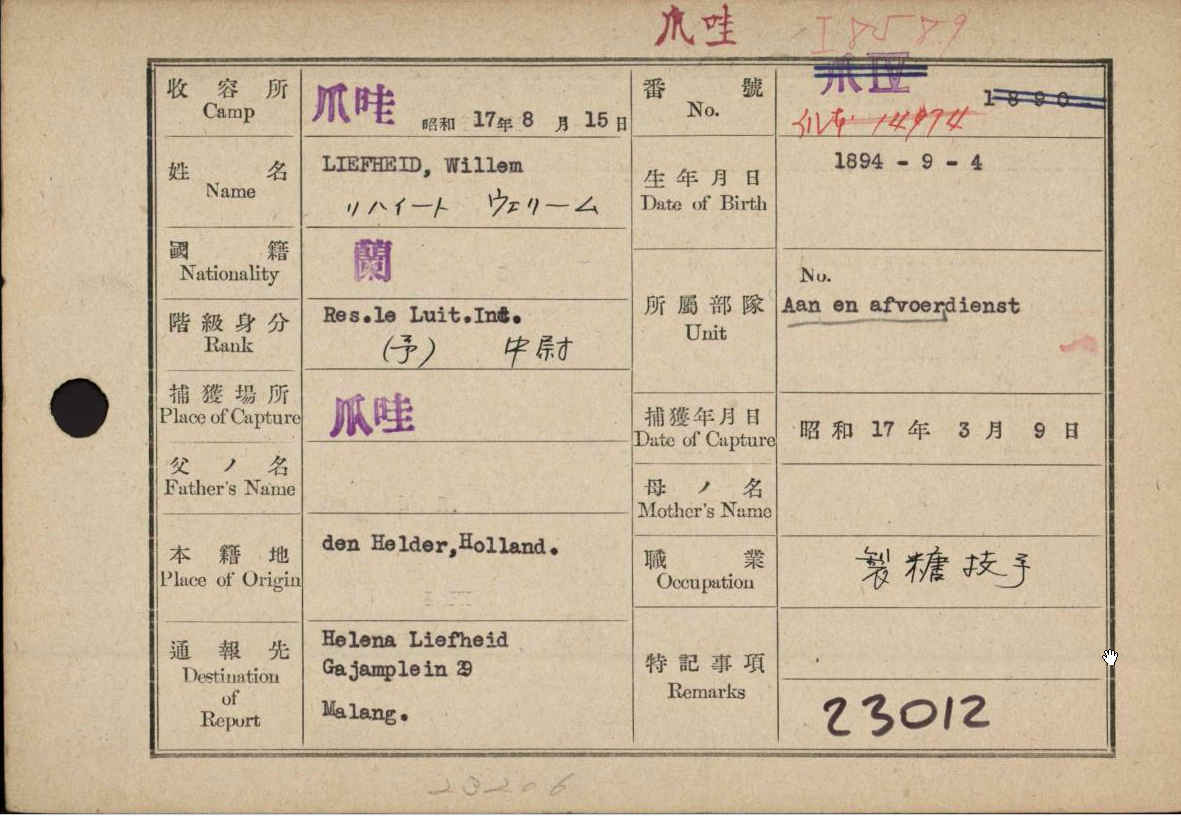 爪哇 I 8589
收容所
Camp
爪哇
昭和 17年 8 月 15日
番號
No.
爪 IV
1890
14974
姓名
Name
LIEFHEID, Willem
リハイート ウェリーム
生年月日
Date of Birth
1894 - 9 - 4
國籍
Nationality
蘭
階級身分
Rank
Res.le Luit.Int.
(予) 中尉
所屬部隊
Unit
No.
Aan en afvoerdienst
捕獲場所
Place of Capture
爪哇
捕獲年月日
Date of Capture
昭和 17 年 3 月 9 日
父ノ名
Father's Name
母ノ名
Mother's Name
本籍地
Place of Origin
den Helder,Holland.
職業
Occupation
製糖技手
通報先
Destination
of
Report
Helena Liefheid
Gajamplein 29
Malang.
特記事項
Remarks
23012
23206